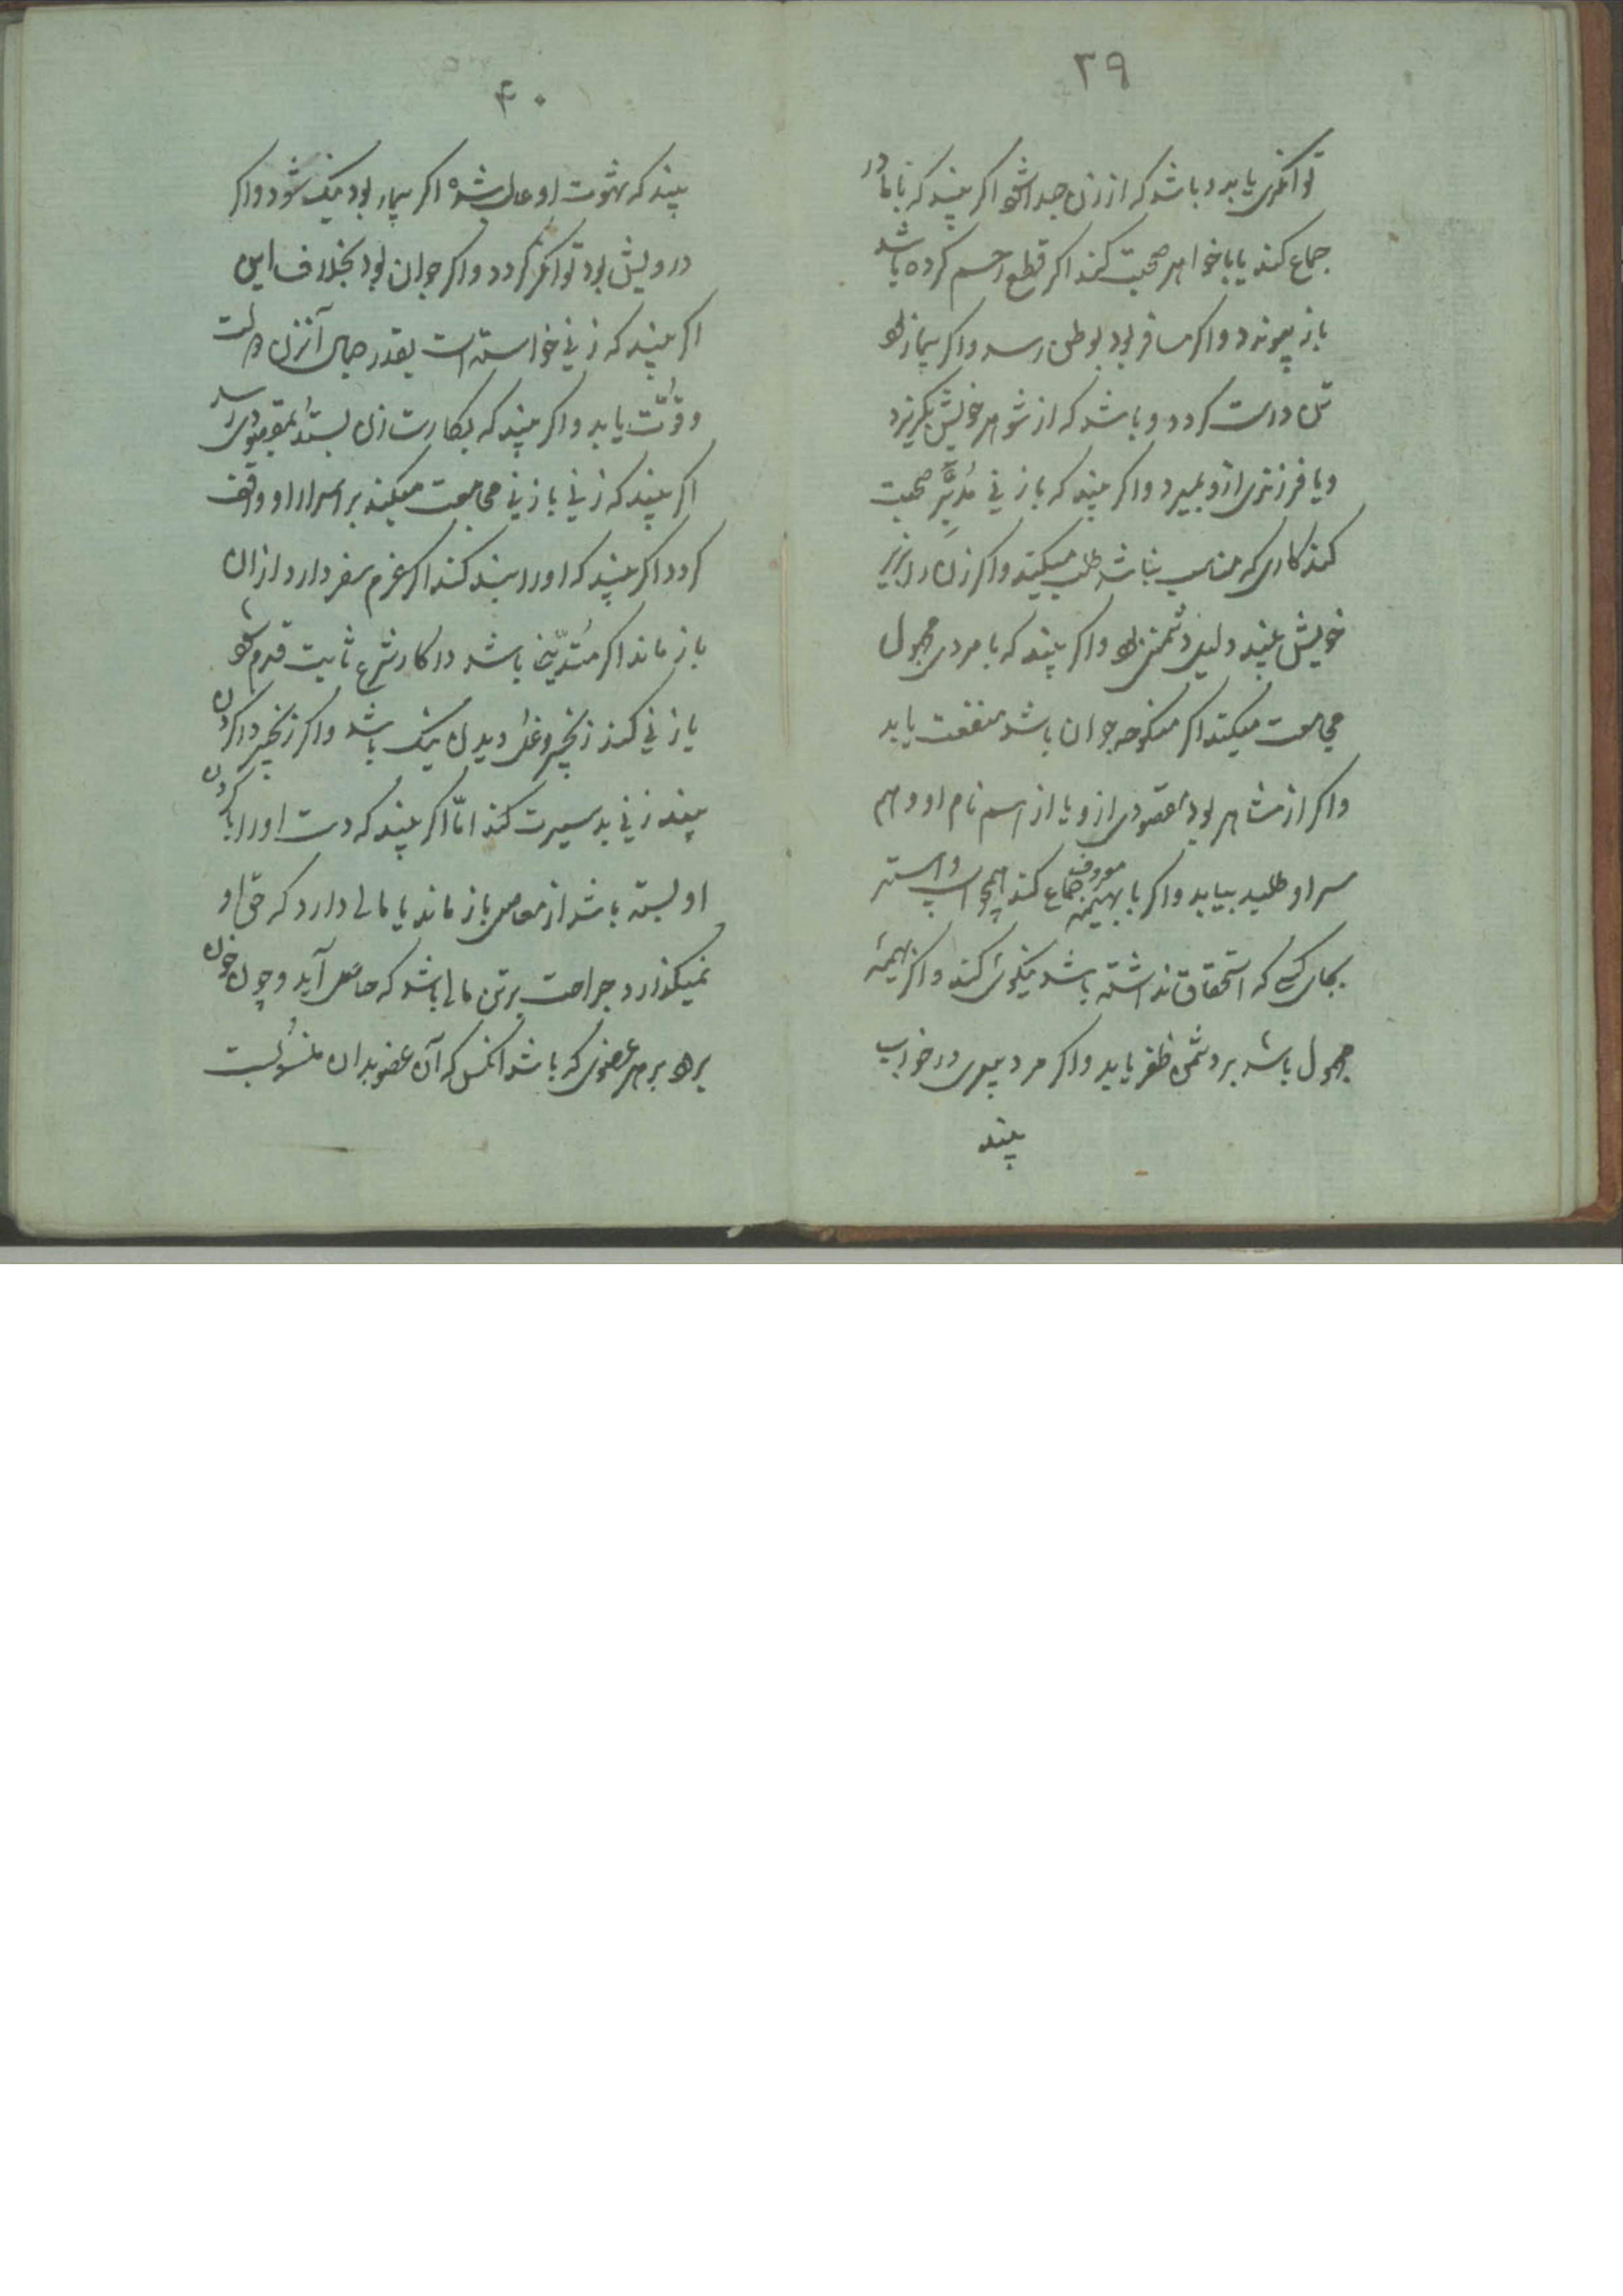 ۳۹
توانکری یابد و باشد که از زن جدا شود اکر بیند که با مادر
جماع کند یا با خواهر صحبت کند اکر قطع رحم کرده باشد
باز پیوندد واکر مسافر بود بوطن رسد واکر بیمار بود
تن درست کردد و باشد که از شوهر خویش بکریزد
ویا فرزندی ازو بمیرد واکر بیند که با زنی مرده صحبت
کند کاری که مناسب نباشد طلب میکند واکر زن در زیر
خویش بیند دلیل دشمنی بود واکر بیند که با مردی مجهول
مجامعت میکند اکر منکوحه جوان باشد منفعت یابد
واکر از مشاهیر بود مقصودی ازو یا از اسم نام او و هم
سر او طلبد بیابد واکر با بهیمه معروف جماع کند همچو اسب و استر
بجای کسی که استحقاق نداشته باشد نیکوئی کند واکر بهیمهٔ
مجهول باشد بر دشمن ظفر یابد واکر مرد پیری در خواب
بیند
۴۰
بیند که شهوت او غالب شده اکر بیمار بود نیک شود واکر
درویش بود توانکر کردد واکر جوان بود بخلاف این
اکر بیند که زنی خواسته است بقدر جمال آنزن دولت
وقوّت یابد واکر بیند که بکارت زن بستد بمقصودی رسد
اکر بیند که زنی با زنی مجامعت میکند بر اسرار او واقف
کردد اکر بیند که اورا بند کنند اکر عزم سفر دارد از ان
باز ماند اکر متدیّن باشد در کار شرع ثابت قدم شود
یا زنی کند زنجیر و غل دیدن نیک باشد واکر زنجیر در کردن
بیند زنی بد سیرت کند امّا اکر بیند که دست اورا بکردن
او بسته باشد از معاصی باز ماند یا مالی دارد که حق او
نمیکذارد جراحت بر تن مالی باشد که حاصل آید و چون خون
برود بر هر عضوی که باشد انکس که آن عضو بدان منسوبست